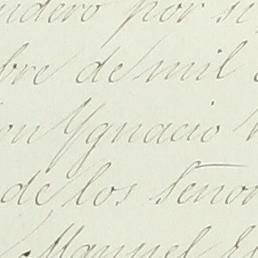 ndero por si
bre de mil
on Ygnacio
de los Señor
Manuel